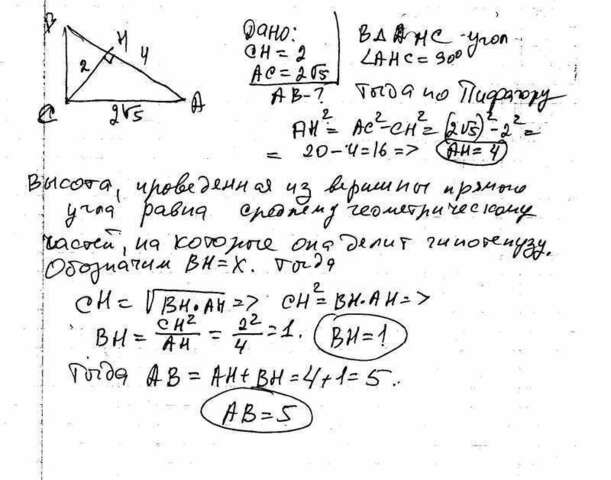 B
H
4
2
C
2√5
A
Дано:
CH = 2
AC = 2√5
AB - ?
В Δ AHC - угол
∠AHC = 90°
Тогда по Пифагору
AH² = AC² - CH² = (2√5)² - 2² =
= 20 - 4 = 16 => AH = 4
Высота, проведенная из вершины прямого
угла равна среднему геометрическому
частей, на которые она делит гипотенузу.
Обозначим BH = X. Тогда
CH = √BH·AH => CH² = BH·AH =>
BH = CH²/AH = 2²/4 = 1. BH = 1
Тогда AB = AH + BH = 4 + 1 = 5.
AB = 5